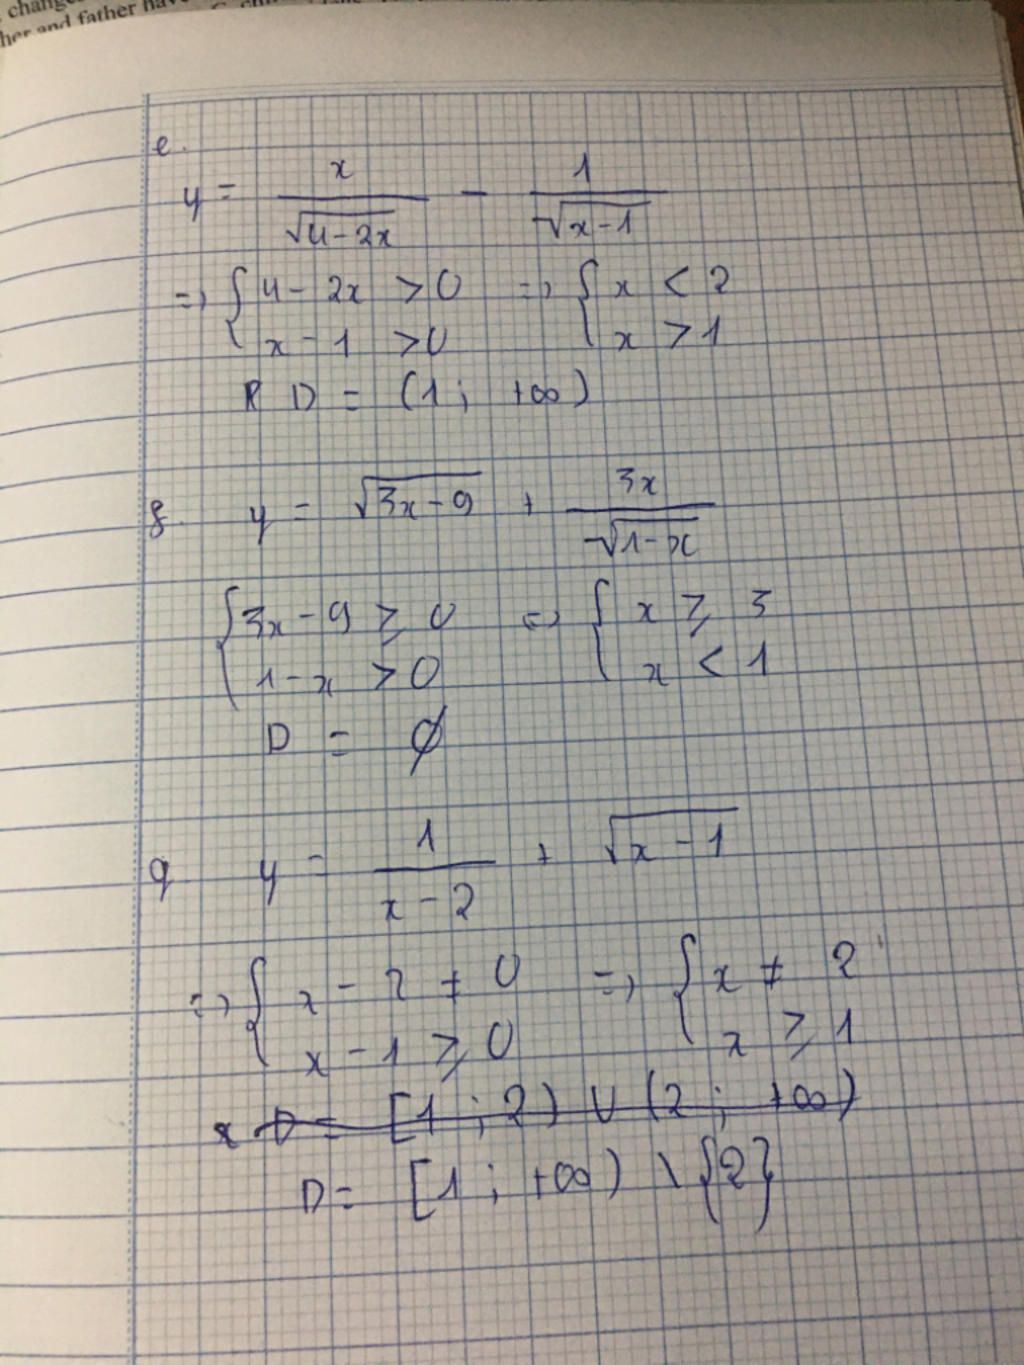 changes
her and father have
e.
y = x / √(4-2x) - 1 / √(x-1)
=> { 4 - 2x > 0 => { x < 2
x - 1 > 0 x > 1
D = (1 ; +∞)
f. y = √(3x-9) + 3x / √(1-x)
{ 3x - 9 ≥ 0 => { x ≥ 3
1 - x > 0 x < 1
D = ∅
g y = 1 / (x-2) + √(x-1)
=> { x - 2 ≠ 0 => { x ≠ 2
x - 1 ≥ 0 x ≥ 1
x D = [1 ; 2) ∪ (2 ; +∞)
D = [1 ; +∞) \ {2}